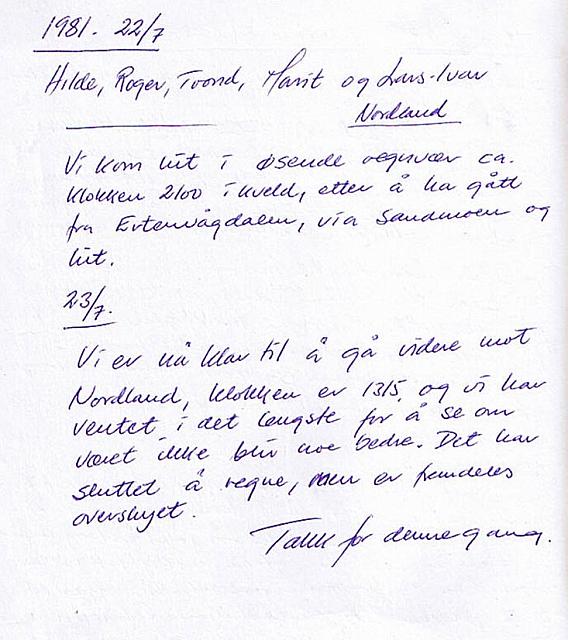 1981. 22/7
Hilde, Roger, Trond, Marit og Lars-Ivar
Nordland
Vi kom hit i øsende regnvær ca.
klokken 2100 i kveld, etter å ha gått
fra Evtenvågdalen, via Sandmoen og
hit.
23/7.
Vi er nå klar til å gå videre mot
Nordland, klokken er 1315 og vi har
ventet i det lengste for å se om
været ikke blir noe bedre. Det har
sluttet å regne, men er fremdeles
overskyet.
Takk for denne gang.